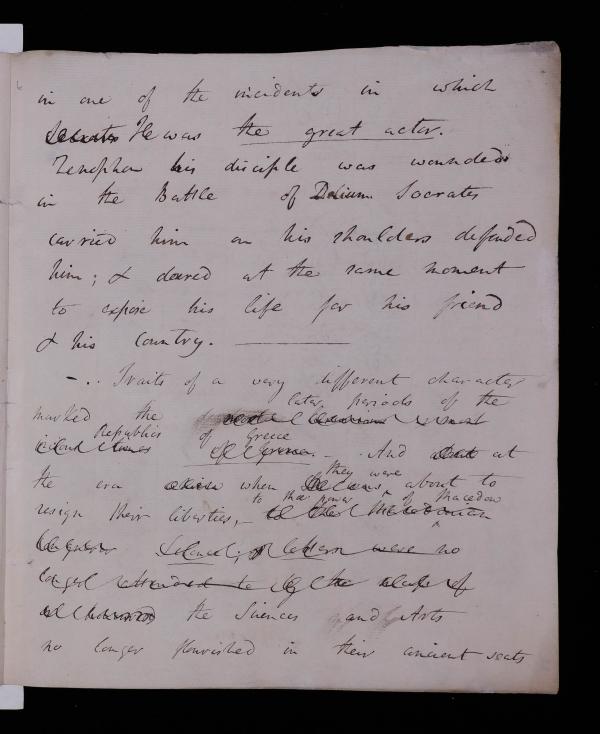 in one of the incidents in which
Socrates He was the great actor.
Zenophon his disciple was wounded
in the Battle of Delium Socrates
carried him on his shoulders defended
him; & dared at the same moment
to expose his life for his friend
& his Country.
Traits of a very different character
later periods of the
marked the
Republics of Greece
of Greece. - And at
they were
the era when about to
to the power of Macedon
resign their liberties,
Science & letters were no
longer attended to by the
the Sciences and Arts
no longer flourished in their ancient seats